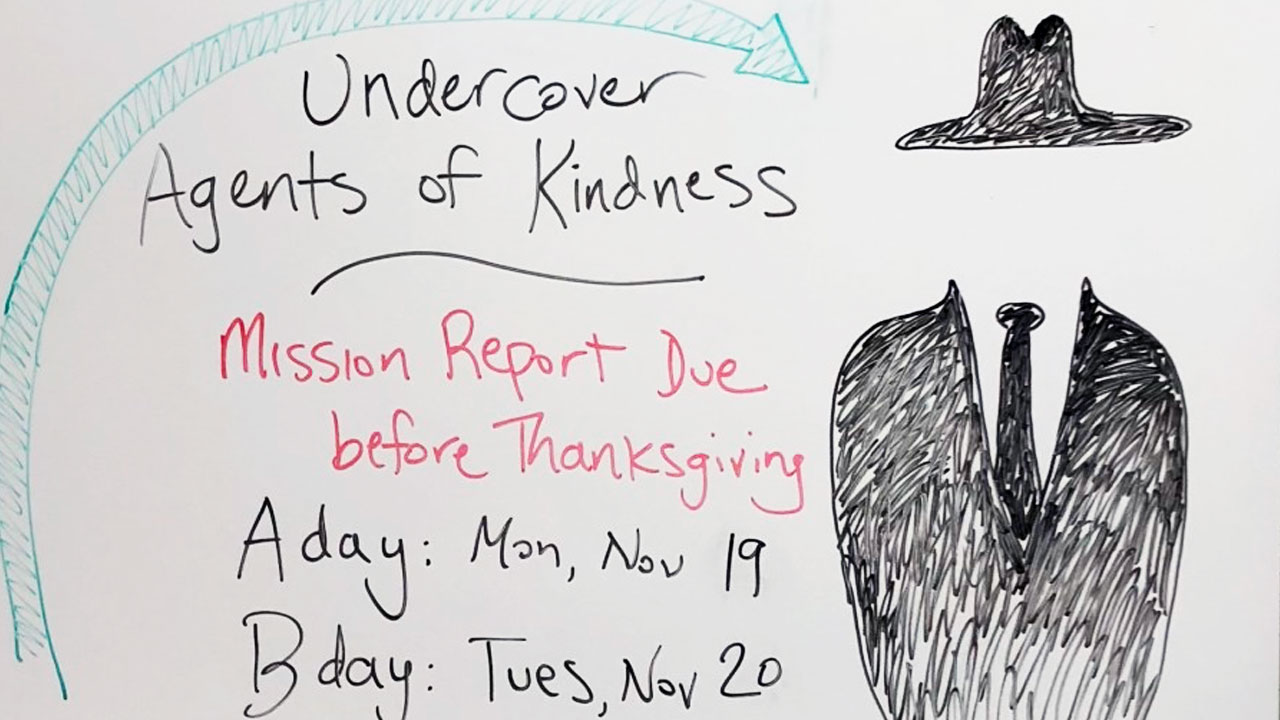 Undercover
Agents of Kindness
Mission Report Due
before Thanksgiving
A day: Mon, Nov 19
B day: Tues, Nov 20